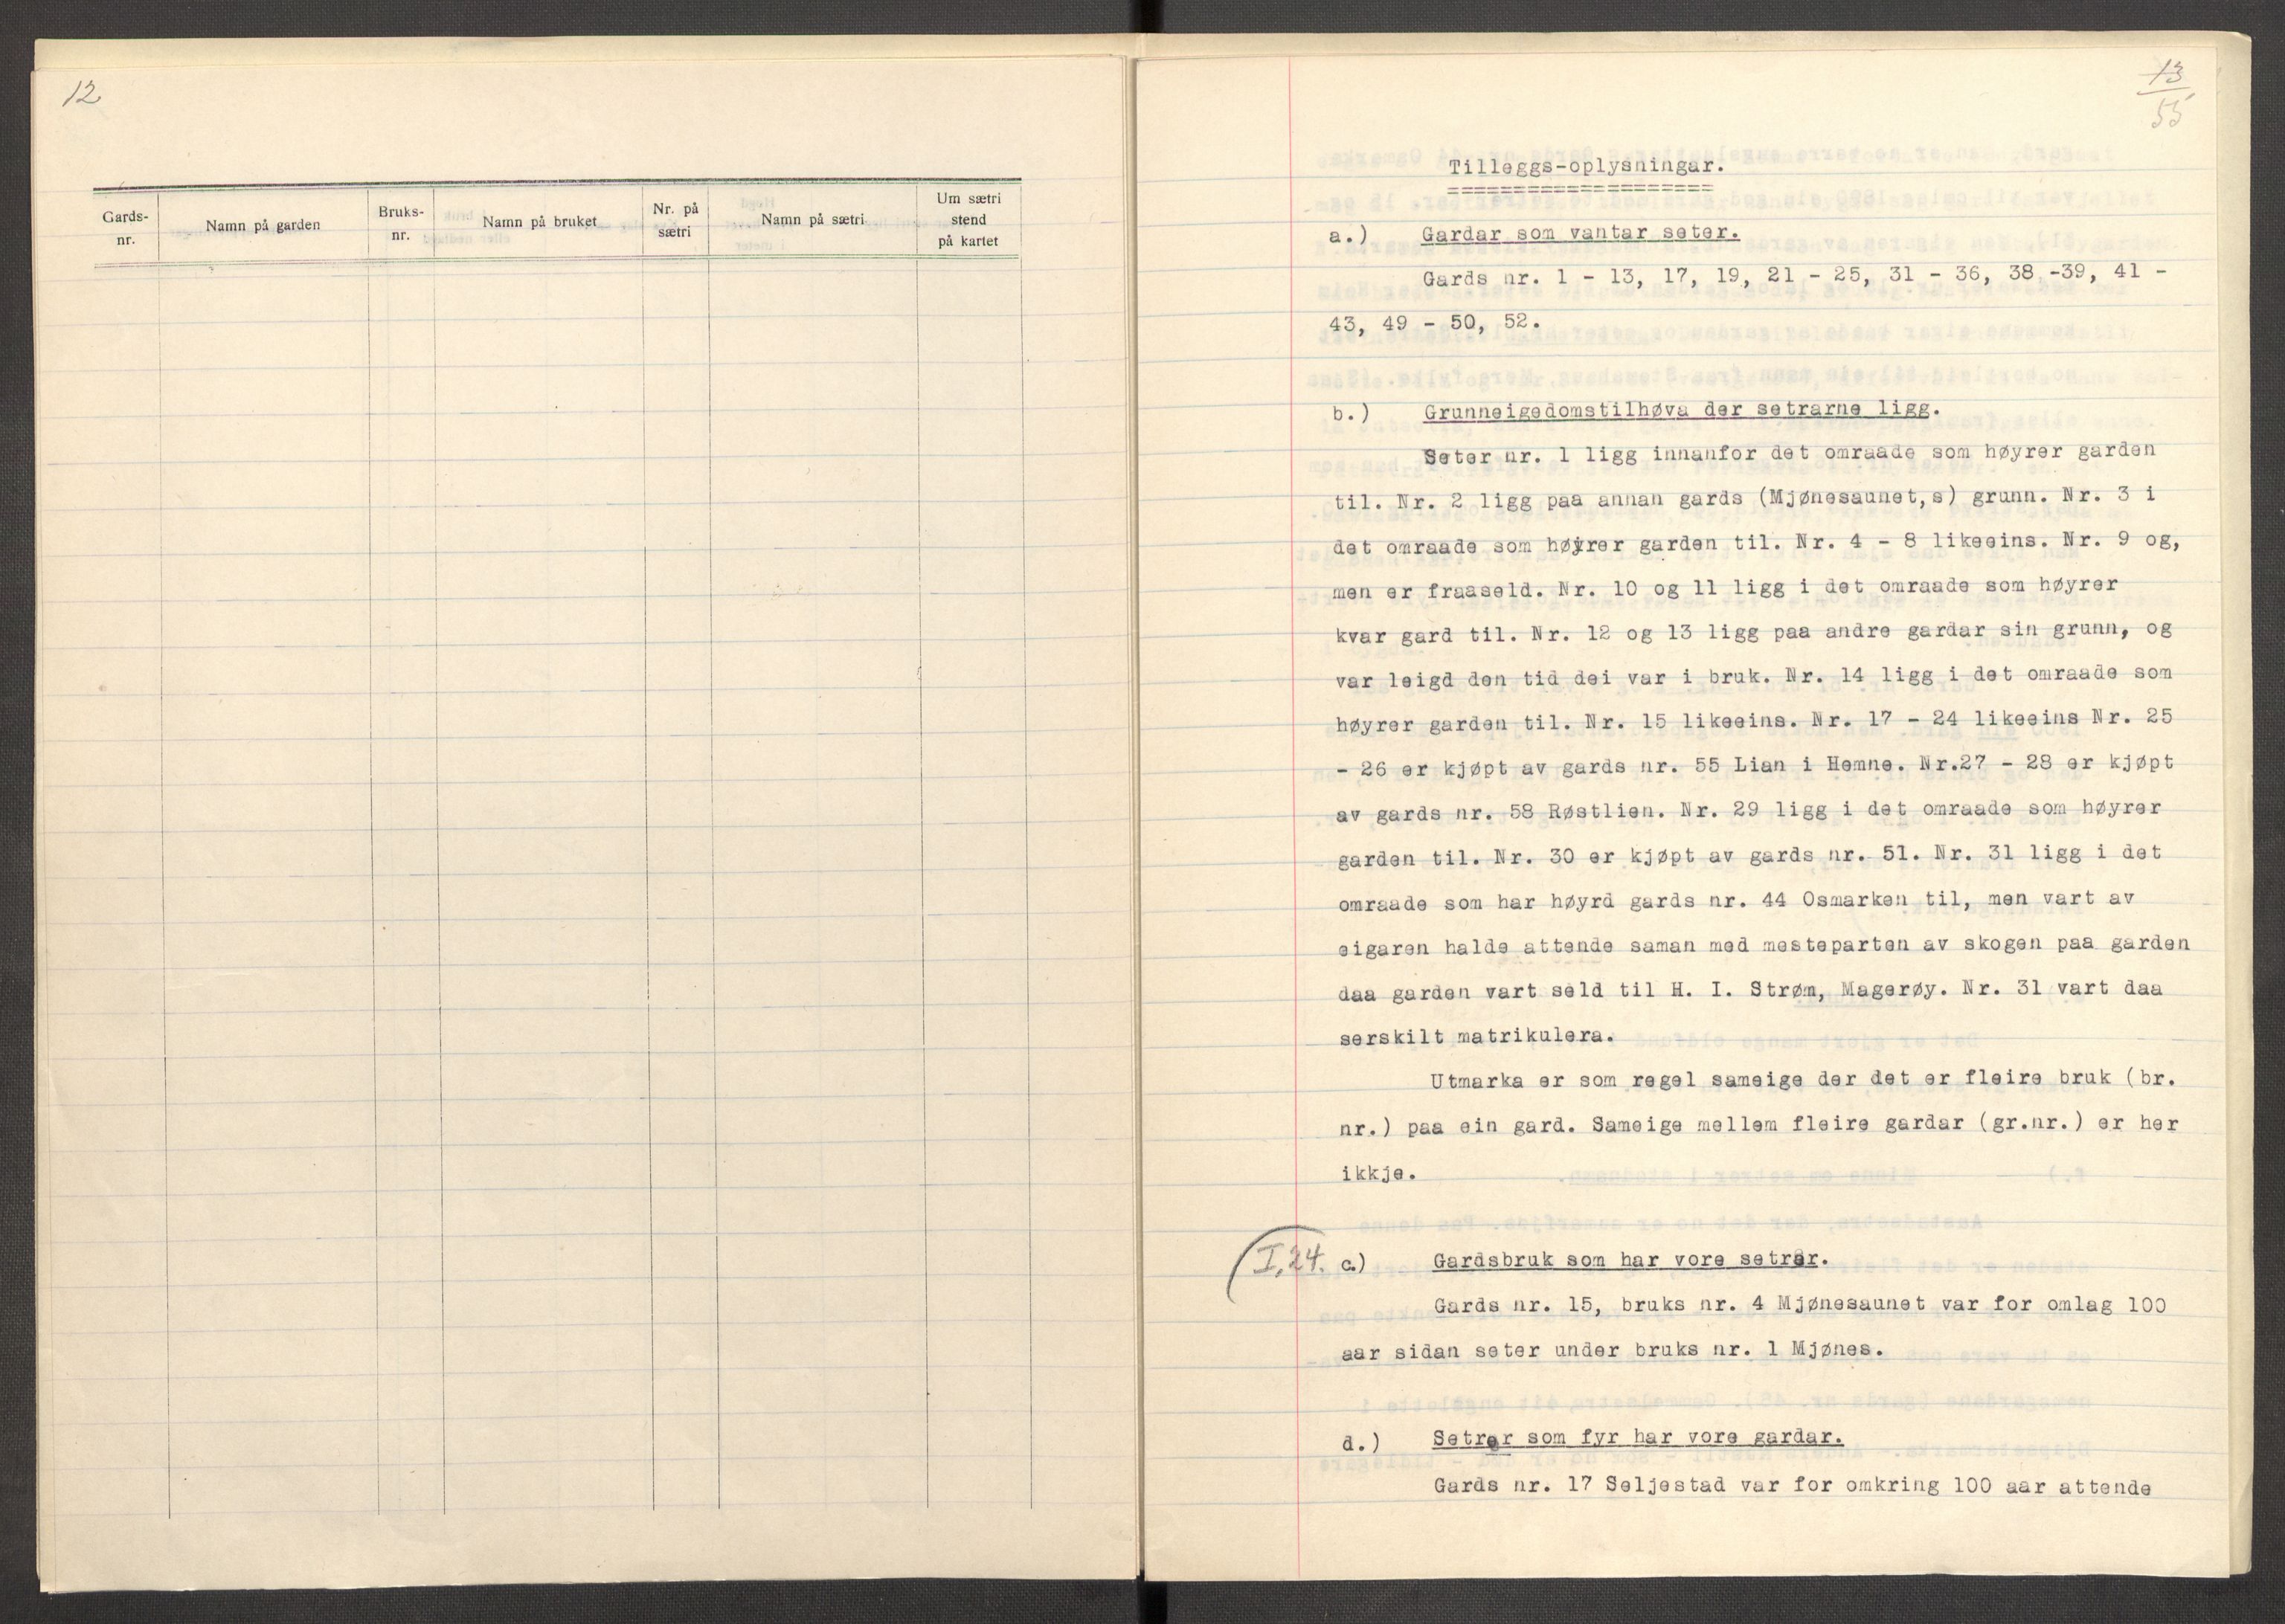 12
Gards-nr. | Namn på garden | Bruks-nr. | Namn på bruket | Nr. på sætri | Namn på sætri | Um sætri stend på kartet
13
55
Tilleggs-oplysningar.
====================
a.) Gardar som vantar seter.
Gards nr. 1 - 13, 17, 19, 21 - 25, 31 - 36, 38 -39, 41 -
43, 49 - 50, 52.
b.) Grunneigedomstilhøva der setrarne ligg.
Seter nr. 1 ligg innanfor det omraade som høyrer garden
til. Nr. 2 ligg paa annan gards (Mjønesaunet,s) grunn. Nr. 3 i
det omraade som høyrer garden til. Nr. 4 - 8 likeeins. Nr. 9 og,
men er fraaseld. Nr. 10 og 11 ligg i det omraade som høyrer
kvar gard til. Nr. 12 og 13 ligg paa andre gardar sin grunn, og
var leigd den tid dei var i bruk. Nr. 14 ligg i det omraade som
høyrer garden til. Nr. 15 likeeins. Nr. 17 - 24 likeeins Nr. 25
- 26 er kjøpt av gards nr. 55 Lian i Hemne. Nr.27 - 28 er kjøpt
av gards nr. 58 Røstlien. Nr. 29 ligg i det omraade som høyrer
garden til. Nr. 30 er kjøpt av gards nr. 51. Nr. 31 ligg i det
omraade som har høyrd gards nr. 44 Osmarken til, men vart av
eigaren halde attende saman med mesteparten av skogen paa garden
daa garden vart seld til H. I. Strøm, Magerøy. Nr. 31 vart daa
serskilt matrikulera.
Utmarka er som regel sameige der det er fleire bruk (br.
nr.) paa ein gard. Sameige mellem fleire gardar (gr.nr.) er her
ikkje.
(I,24. c.) Gardsbruk som har vore setrer.
Gards nr. 15, bruks nr. 4 Mjønesaunet var for omlag 100
aar sidan seter under bruks nr. 1 Mjønes.
d.) Setrer som fyr har vore gardar.
Gards nr. 17 Seljestad var for omkring 100 aar attende